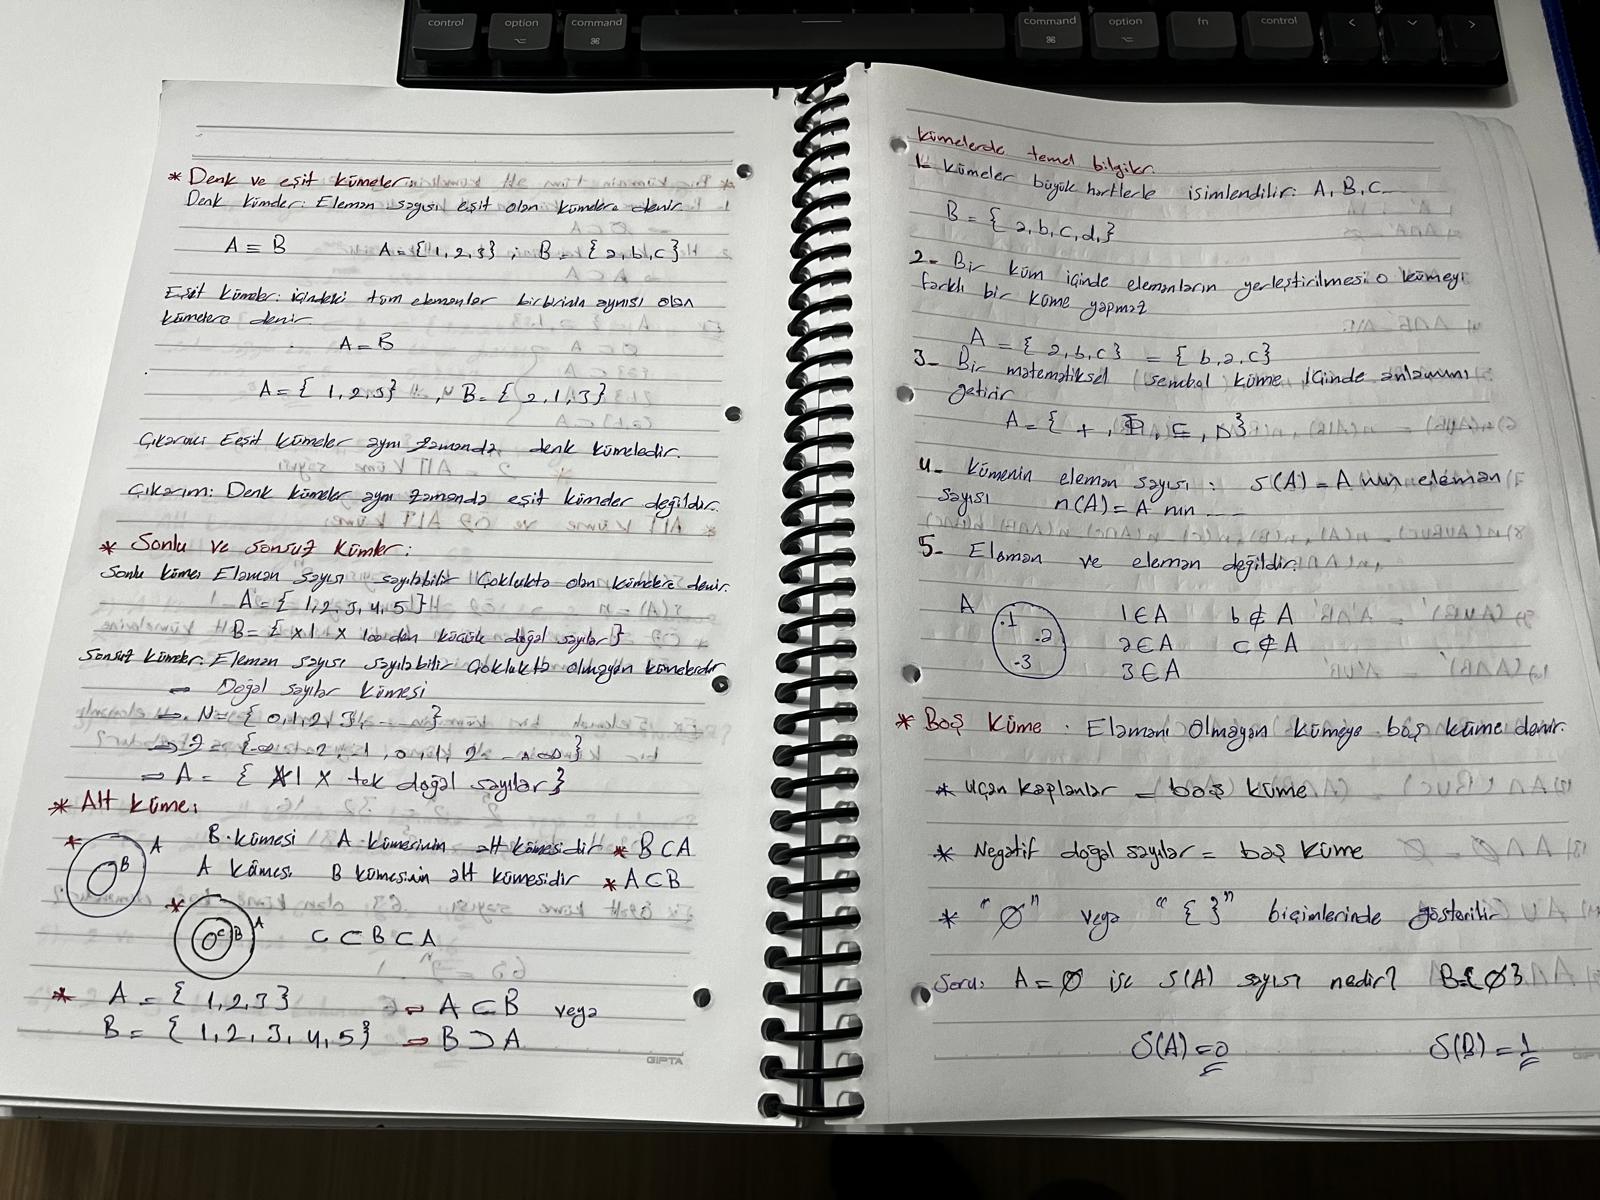 control option command command option fn control
* Denk ve eşit kümeler:
Denk kümeler: Eleman sayısı eşit olan kümelere denir.
A ≡ B A = {1,2,3} ; B = {a,b,c}
Eşit kümeler: içindeki tüm elemanlar birbirinin aynısı olan
kümelere denir.
A = B
A = {1,2,3} , B = {2,1,3}
Çıkarım: Eeşit kümeler aynı zamanda denk kümeledir.
Çıkarım: Denk kümeler aynı zamanda eşit kümeler değildir.
* Sonlu ve sonsuz kümler:
Sonlu küme: Eleman sayısı sayılabilir çoklukta olan kümelere denir.
A = { 1,2,3,4,5 }
B = { x | x 100 den küçük doğal sayılar }
Sonsuz kümeler: Eleman sayısı sayılabilir çoklukta olmayan kümelerdir
⇒ Doğal sayılar kümesi
⇒ N = { 0,1,2,3,.....}
⇒ Z = {-∞ ... -2, -1, 0, 1, 2 ... ∞}
⇒ A = { x | x tek doğal sayılar }
* Alt küme:
* A B B kümesi A kümesinin alt kümesidir * B⊂A
A kümesi B kümesinin alt kümesidir * A⊂B
* A B C C⊂B⊂A
* A = { 1,2,3 } ⇒ A⊂B veya
B = { 1,2,3,4,5 } ⇒ B⊃A
GIPTA
Kümelerde temel bilgiler
1- Kümeler büyük harflerle isimlendilir: A,B,C...
B = { a,b,c,d, }
2- Bir küm içinde elemanların yerleştirilmesi o kümeyi
farklı bir küme yapmaz
A = { a,b,c } = { b,a,c }
3- Bir matematiksel sembol küme içinde anlamını
A = { +,
4- Kümenin eleman sayısı : s(A) = A nın eleman
sayısı n(A) = A nın ....
5- Eleman ve eleman değildir
A .1 1∈A b∉A
.2 2∈A c∉A
.3 3∈A
* Boş Küme : Elemanı olmayan kümeye boş küme denir.
* Uçan kaplanlar = boş küme
* Negatif doğal sayılar = boş küme
* "∅" veya "{ }" biçimlerinde gösterilir
Soru: A = ∅ ise s(A) sayısı nedir? B={∅}
s(A) = 0 s(B) = 1